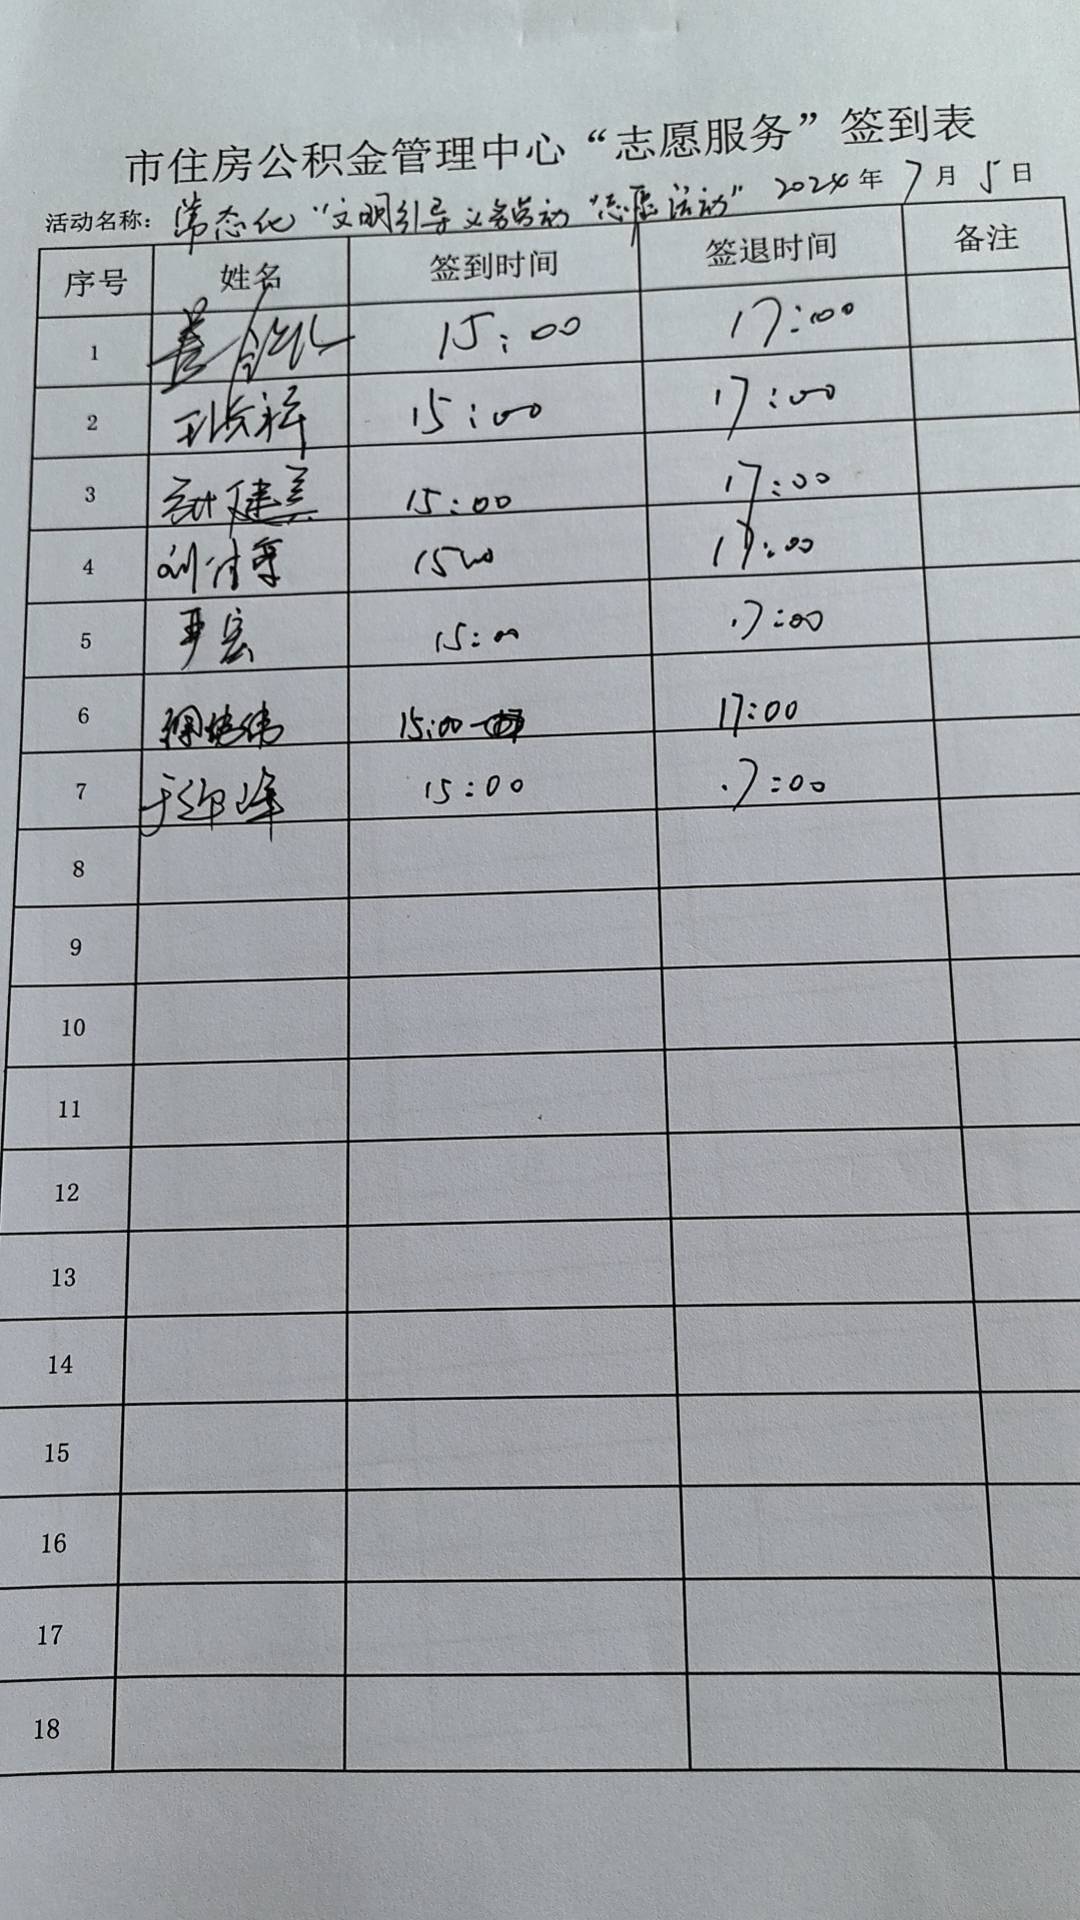 市住房公积金管理中心“志愿服务”签到表
活动名称：常态化“文明引导义务劳动“志愿活动” 2024年7月5日
序号 姓名 签到时间 签退时间 备注
1 15:00 17:00
2 15:00 17:00
3 建美 15:00 17:00
4 刘 15:00 17:00
5 严宏 15:00 17:00
6 15:00 17:00
7 于 峰 15:00 17:00
8
9
10
11
12
13
14
15
16
17
18